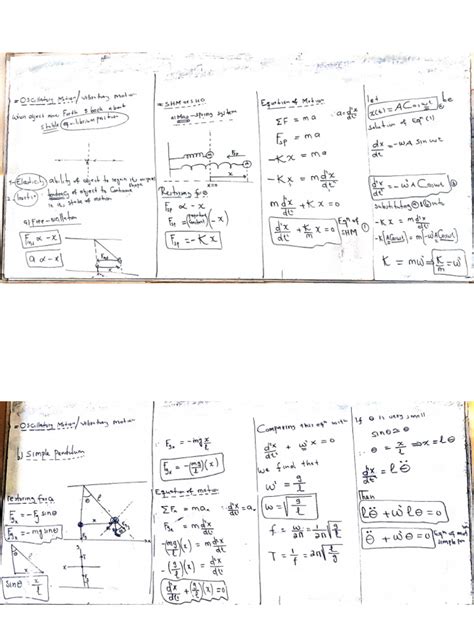 * Oscillatory Motion / vibratory motion
When object move Forth & back about
stable equilibrium position
1- Elasticity
ability of object to regain its
shape
2- Inertia
tendency of object to Continue
its state of motion
a) Free oscillation
F ∝ -x
a ∝ -x
* SHM or SHO
a) Mass-spring system
Restoring force
Fsp ∝ -x
Fsp = (constant)(-x)
Fsp = -Kx
Equation of Motion
ΣF = ma
∴ a = d²x/dt²
Fsp = ma
-Kx = ma
-Kx = m d²x/dt²
m d²x/dt² + Kx = 0
d²x/dt² + K/m x = 0
Eqⁿ of SHM ①
let
x(t) = A Cos ωt be
Solution of Eqⁿ (1)
dx/dt = -ωA Sin ωt
d²x/dt² = -ω²A Cos ωt
Substituting
-Kx = m d²x/dt²
K = mω² ⇒ K/m = ω²
* Oscillatory Motion / vibratory motion
b) Simple Pendulum
restoring force
Fgx = -Fg sinθ
Fgx = -mg sinθ
Sinθ = x/l
∴ Fgx = -mg x/l
Fgx = -(mg/l)(x)
Equation of motion
ΣFx = max
∴ d²x/dt² = ax
Fgx = m d²x/dt²
-(mg/l)(x) = m d²x/dt²
-(g/l)(x) = d²x/dt²
d²x/dt² + (g/l)(x) = 0
Comparing this eqⁿ with
d²x/dt² + ω²x = 0
we find that
ω² = g/l
ω = √g/l
f = ω/2π = 1/2π √g/l
T = 1/f = 2π √l/g
If θ is very small
sinθ ≅ θ
∴ θ = x/l ⇒ x = lθ
d²x/dt² = l θ̈
Then
l θ̈ + ω² l θ = 0
θ̈ + ω² θ = 0
Eqⁿ of mot
simple pen